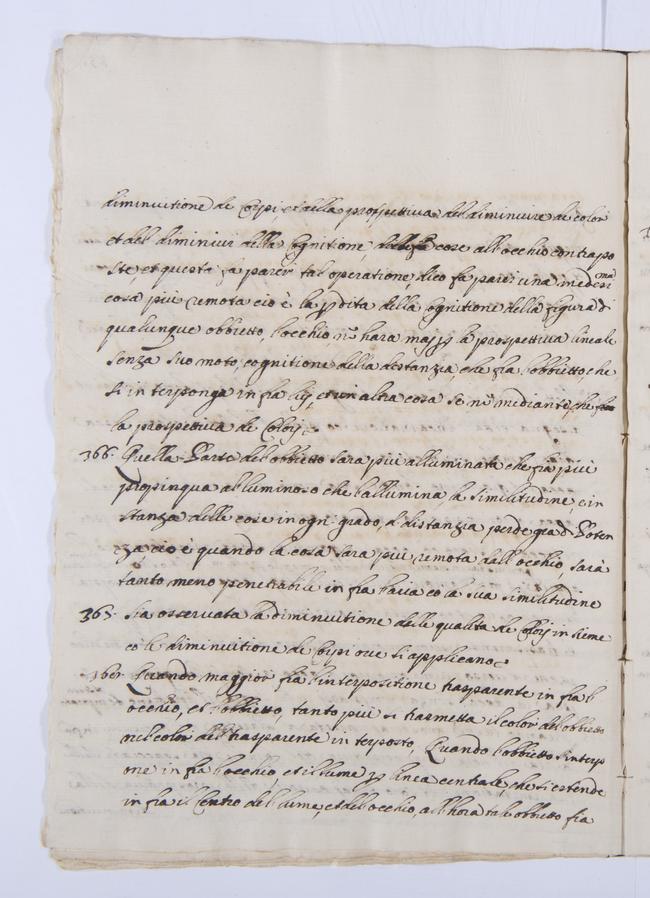 diminuitione de Corpi, et della prospettiva del diminuire de color
et del diminuir della cognitione, delle cose all occhio contrapo
ste, et questa fa parer tal operatione, dico fa parer una medesi ma
cosa più remota cio è la pdita della cognitione della figura di
qualunque obbietto, l occhio nō hara maj p la prospettiva lineale
senza suo moto, cognitione della distanza, che fia l obbietto, che
si interponga in fra lij, et un altra cosa se nō mediante, che fia
la prospettiva de Colorj.
366. Quella Parte del obbietto sara più alluminata che fia più
propinqua al luminoso che l allumina, la similitudine, e in
stanza delle cose in ogni grado, d distanzia perde gradi Poten
za, cio è quando la cosa sara più remota dall occhio, sarà
tanto meno penetrabile in fra l aria cō la sua similitudine
365. Sia osservata la diminuitione delle qualita de Colorj insieme
cō le diminuitione de Corpi ove si applicano.
Quando maggior fia l interpositione trasparente in fra l
occhio, et l obbietto, tanto più si trasmetta il color dell obbietto
nel color del trasparente interposto, Quando l obbietto s interp
one in fra l occhio, et il lume p linea centrale, che si estende
in fra il Centro del lume, et dell occhio, all hora tal obbietto fia